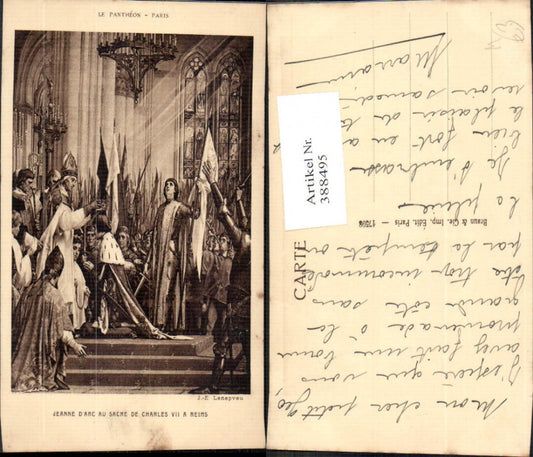 LE PANTHÉON - PARIS
J.-E. Lenepveu
JEANNE D'ARC AU SACRE DE CHARLES VII A REIMS
Mon cher petit Geo,
J'espère que vous
avez fait une bonne
promenade à la
grande côte sans
être trop incommodés
par la tempête ou
la pluie
Je t'embrasse
bien fort en
le plaisir de
revoir samedi
Marraine
CARTE
Braun & Cie. Imp. Edit. Paris
Artikel Nr.
388495